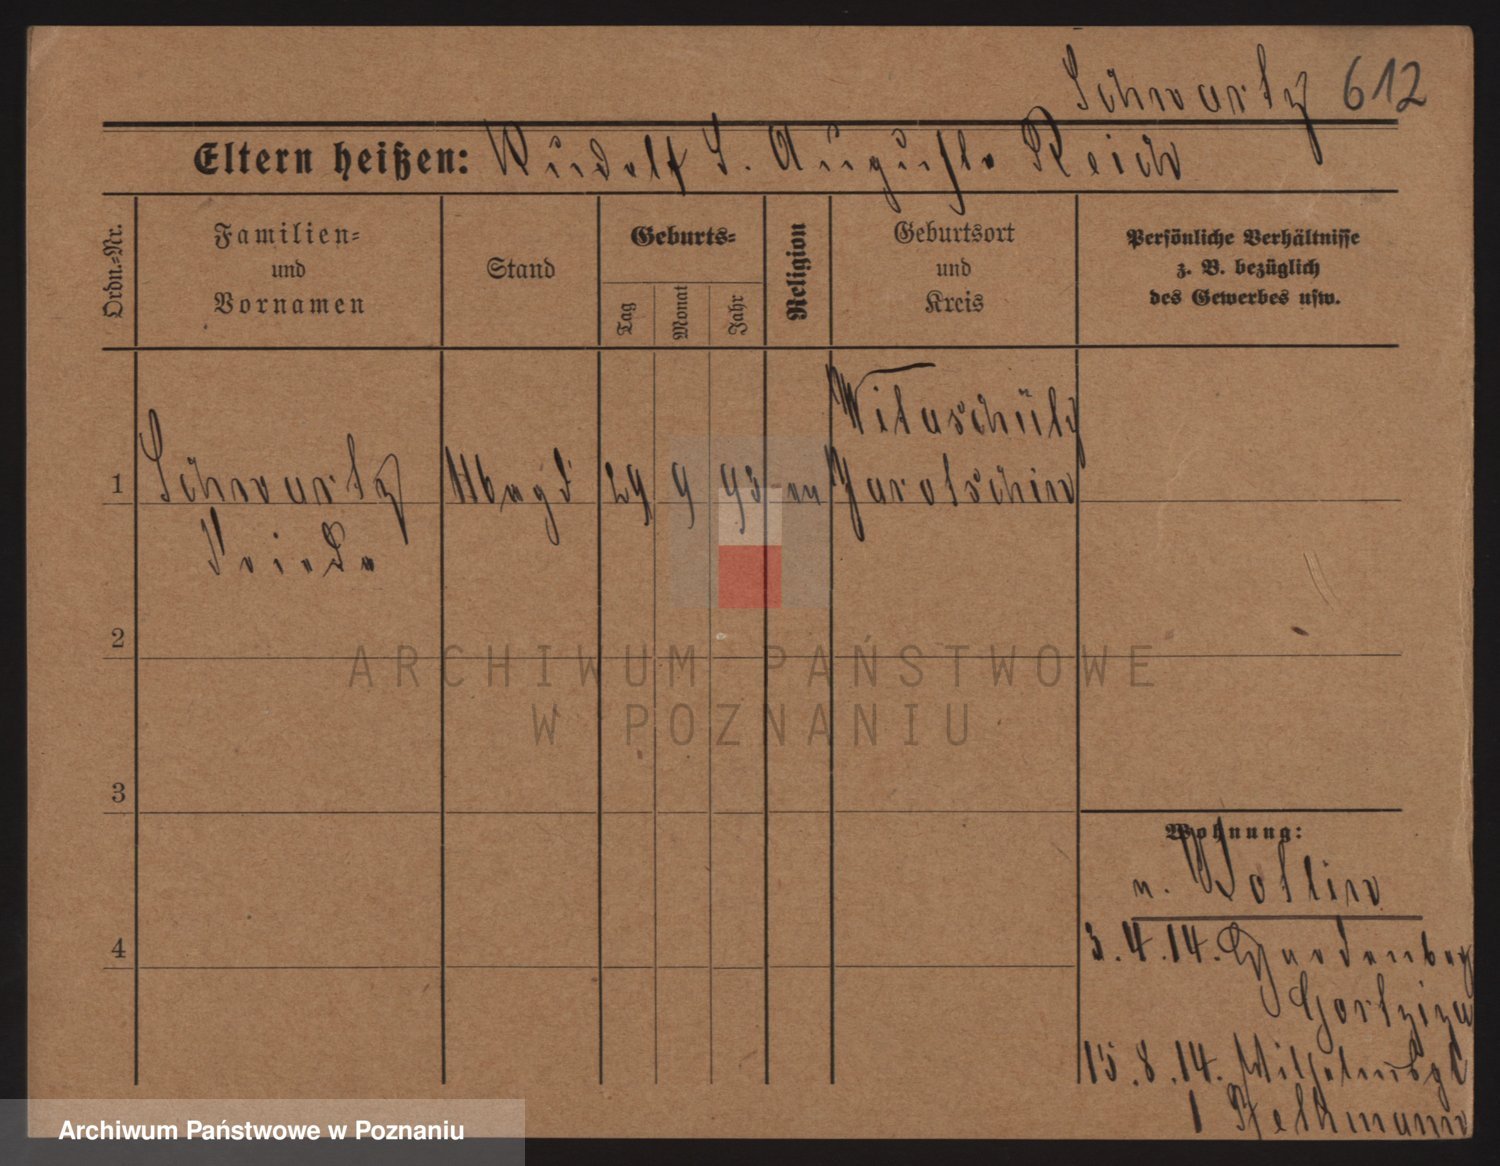 Schwartz 612
Eltern heißen: Rudolf S. Auguste Reich
Ordn.-Nr.
Familien- und Vornamen
Stand
Geburts-
Tag
Monat
Jahr
Religion
Geburtsort und Kreis
Persönliche Verhältnisse
z. B. bezüglich
des Gewerbes usw.
Witaschütz
1 Schwartz 29 9 93 Jarotschin
Frieda
2
3
4
ARCHIWUM PAŃSTWOWE
W POZNANIU
Wohnung:
n. Wollin
3.4.14.
15.8.14.
Archiwum Państwowe w Poznaniu